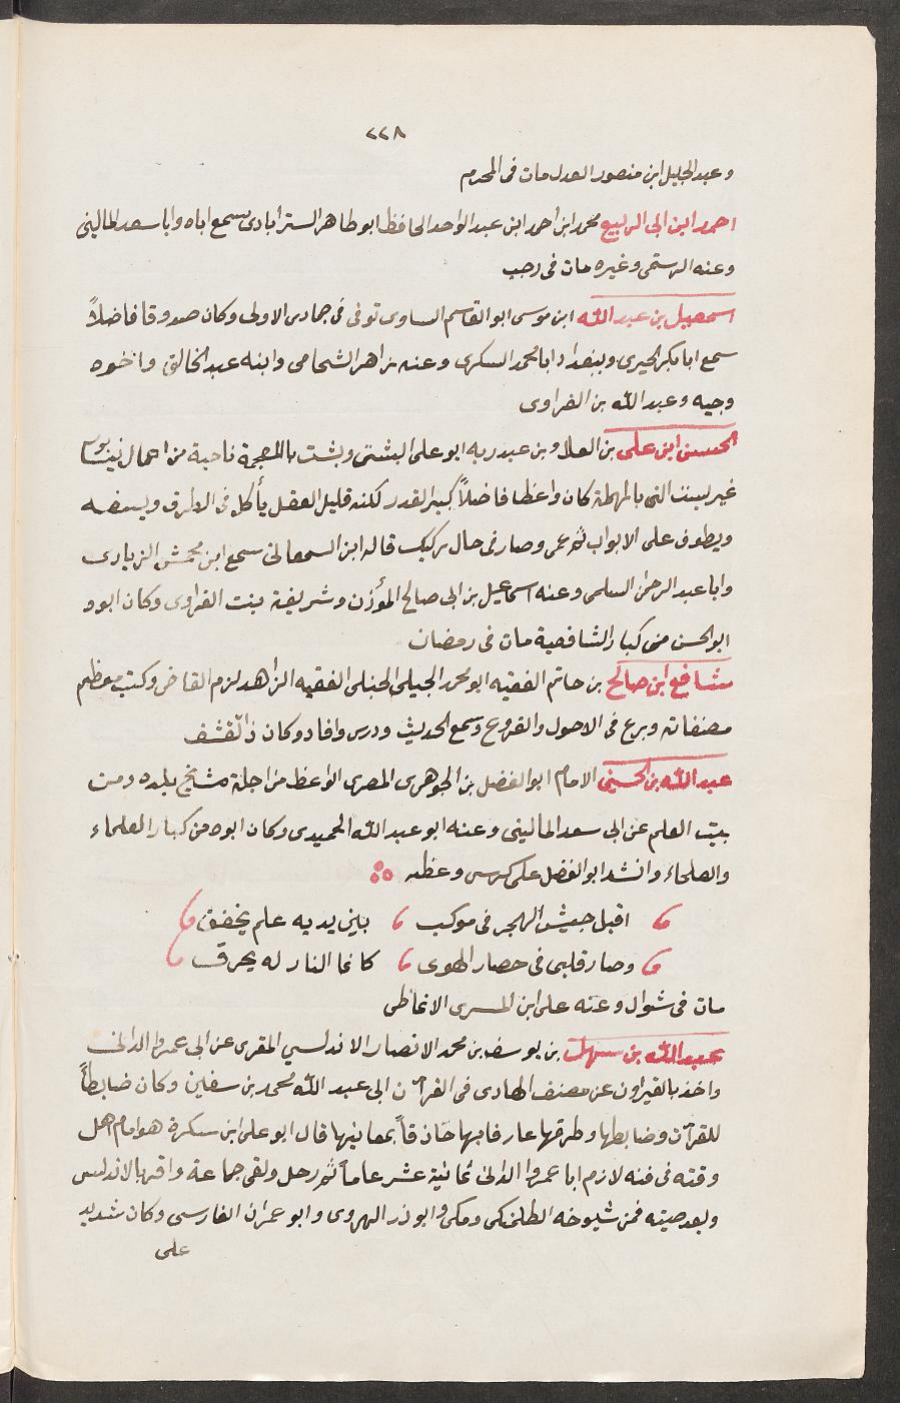 ٢٢٨
وعبد الجليل ابن منصور العدل مات فى المحرم
احمد ابن ابى الربيع محمد ابن احمد ابن عبد الواحد الحافظ ابو طاهر الستراباذى سمع اباه وابا سعد المالينى
وعنه الرستمى وغيره مات فى رجب
اسمعيل بن عبد الله ابن موسى ابو القاسم الساوى توفى فى جمادى الاولى وكان صدوقا فاضلاً
سمع ابا بكر الحيرى وببغداد ابا محمد السكرى وعنه زاهر الشحامى وابنه عبد الخالق واخوه
وجيه وعبد الله بن الفراوى
الحسن ابن على بن العلاو بن عبدربه ابو على البشتى وبشت بالمعجمة ناحية من اعمال نيسابور
غير بست التى بالمهملة كان واعظا فاضلاً كبير القدر لكنه قليل العقل يأكل فى الطرق
ويطوف على الابواب ثم عمى وصار فى حال ركيك قاله ابن السمعانى سمع ابن محمش الزيادى
وابا عبد الرحمن السلمى وعنه اسماعيل بن ابى صالح المؤذن وشريفة بنت الفراوى وكان ابوو
ابو الحسن من كبار الشافعية مات فى رمضان
شافع ابن صالح بن حاتم الفقيه ابو محمد الجيلى الحنبلى الفقيه الزاهد لزم القاض وكتب معظم
مصنفاته وبرع فى الاصول والفروع وسمع الحديث ودرس وافاد وكان ذا تقشف
عبد الله بن الحسين الامام ابو الفضل بن الجوهرى المصرى الواعظ من اجلة مشايخ بلده ومن
بيت العلم عن ابى سعد المالينى وعنه ابو عبد الله الحميدى وكان ابوه من كبار العلماء
والصلحاء وانشد ابو الفضل على كرسى وعظه
اقبل جيش الهجر فى موكب بين يديه علم يخفق
وصار قلبى فى حصار الهوى كانما النار له يحرق
مات فى شوال وعنه على ابن المسرى الانماطى
عبد الله بن سهل بن يوسف بن محمد الانصار الاندلسي المقرى عن ابى عمروا الدانى
واخذ بالقيراون عن مصنف الهادى فى القرآن ابى عبد الله محمد بن سفين وكان ضابطاً
للقرآن وضابطها وطرقها عارفا بها حاذقاً بمعانيها قال ابو على ابن سكرة هو امام اهل
وقته فى فنه لازم ابا عمروا الدانى ثمانية عشر عاماً ثم رحل ولقى جماعة واقر بالاندلس
وبعد صيته فمن شيوخه الطلمنكى ومكى وابو ذر الهروى وابو عمران الفارسى وكان شديد
على